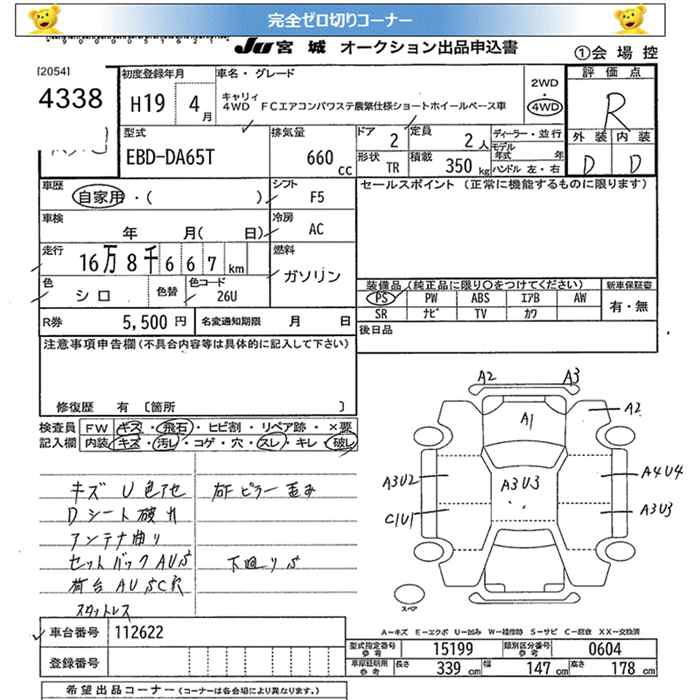 完全ゼロ切りコーナー
JU宮城 オークション出品申込書
①会場控
[2054]
4338
初度登録年月
H19 4月
車名・グレード
キャリィ
4WD FCエアコンパワステ農繁仕様ショートホイールベース車
2WD
・
4WD
評価点
R
外装 内装
D D
型式
EBD-DA65T
排気量
660 cc
ドア 2
定員 2人
形状 TR
積載 350kg
ディーラー・並行
モデル年式 年
ハンドル 左・右
車歴
自家用・( )
シフト F5
セールスポイント (正常に機能するものに限ります)
車検
年 月( 日)
冷房 AC
走行
16万8千667km
燃料
ガソリン
色 シロ
色替
色コード 26U
装備品 (純正品に限り○をつけてください)
新車保証書
PS PW ABS エアB AW
有・無
SR ナビ TV カワ
R券 5,500円
名変通知期限 月 日
後日品
注意事項申告欄 (不具合内容等は具体的に記入して下さい)
修復歴 有 〔箇所 〕
検査員記入欄
FW キズ・飛石・ヒビ割・リペア跡・×要
内装 キズ・汚し・コゲ・穴・スレ・キレ・破レ
キズ U 色アセ
右Fピラー歪み
Dシート破れ
アンテナ曲り
セットバックAUS
下廻りS
荷台AUSC穴
スタットレス
A2 A3
A1
A2
A3U2
A3U3
A4U4
C1U1
A3U3
スペア
A=キズ E=エクボ U=凹み W=補修跡 S=サビ C=腐食 XX=交換済
車台番号 112622
登録番号
型式指定番号 参考 15199
類別区分番号 参考 0604
車庫証明用 参考 長さ 339cm 幅 147cm 高さ 178cm
希望出品コーナー (コーナーは各会場により異なります。)